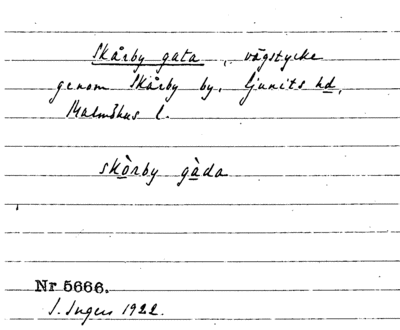 Skårby gata, vägstycke
genom Skårby by, Ljunits hd,
Malmöhus l.
skòrby gàda
Nr 5666.
I. Ingers 1922.